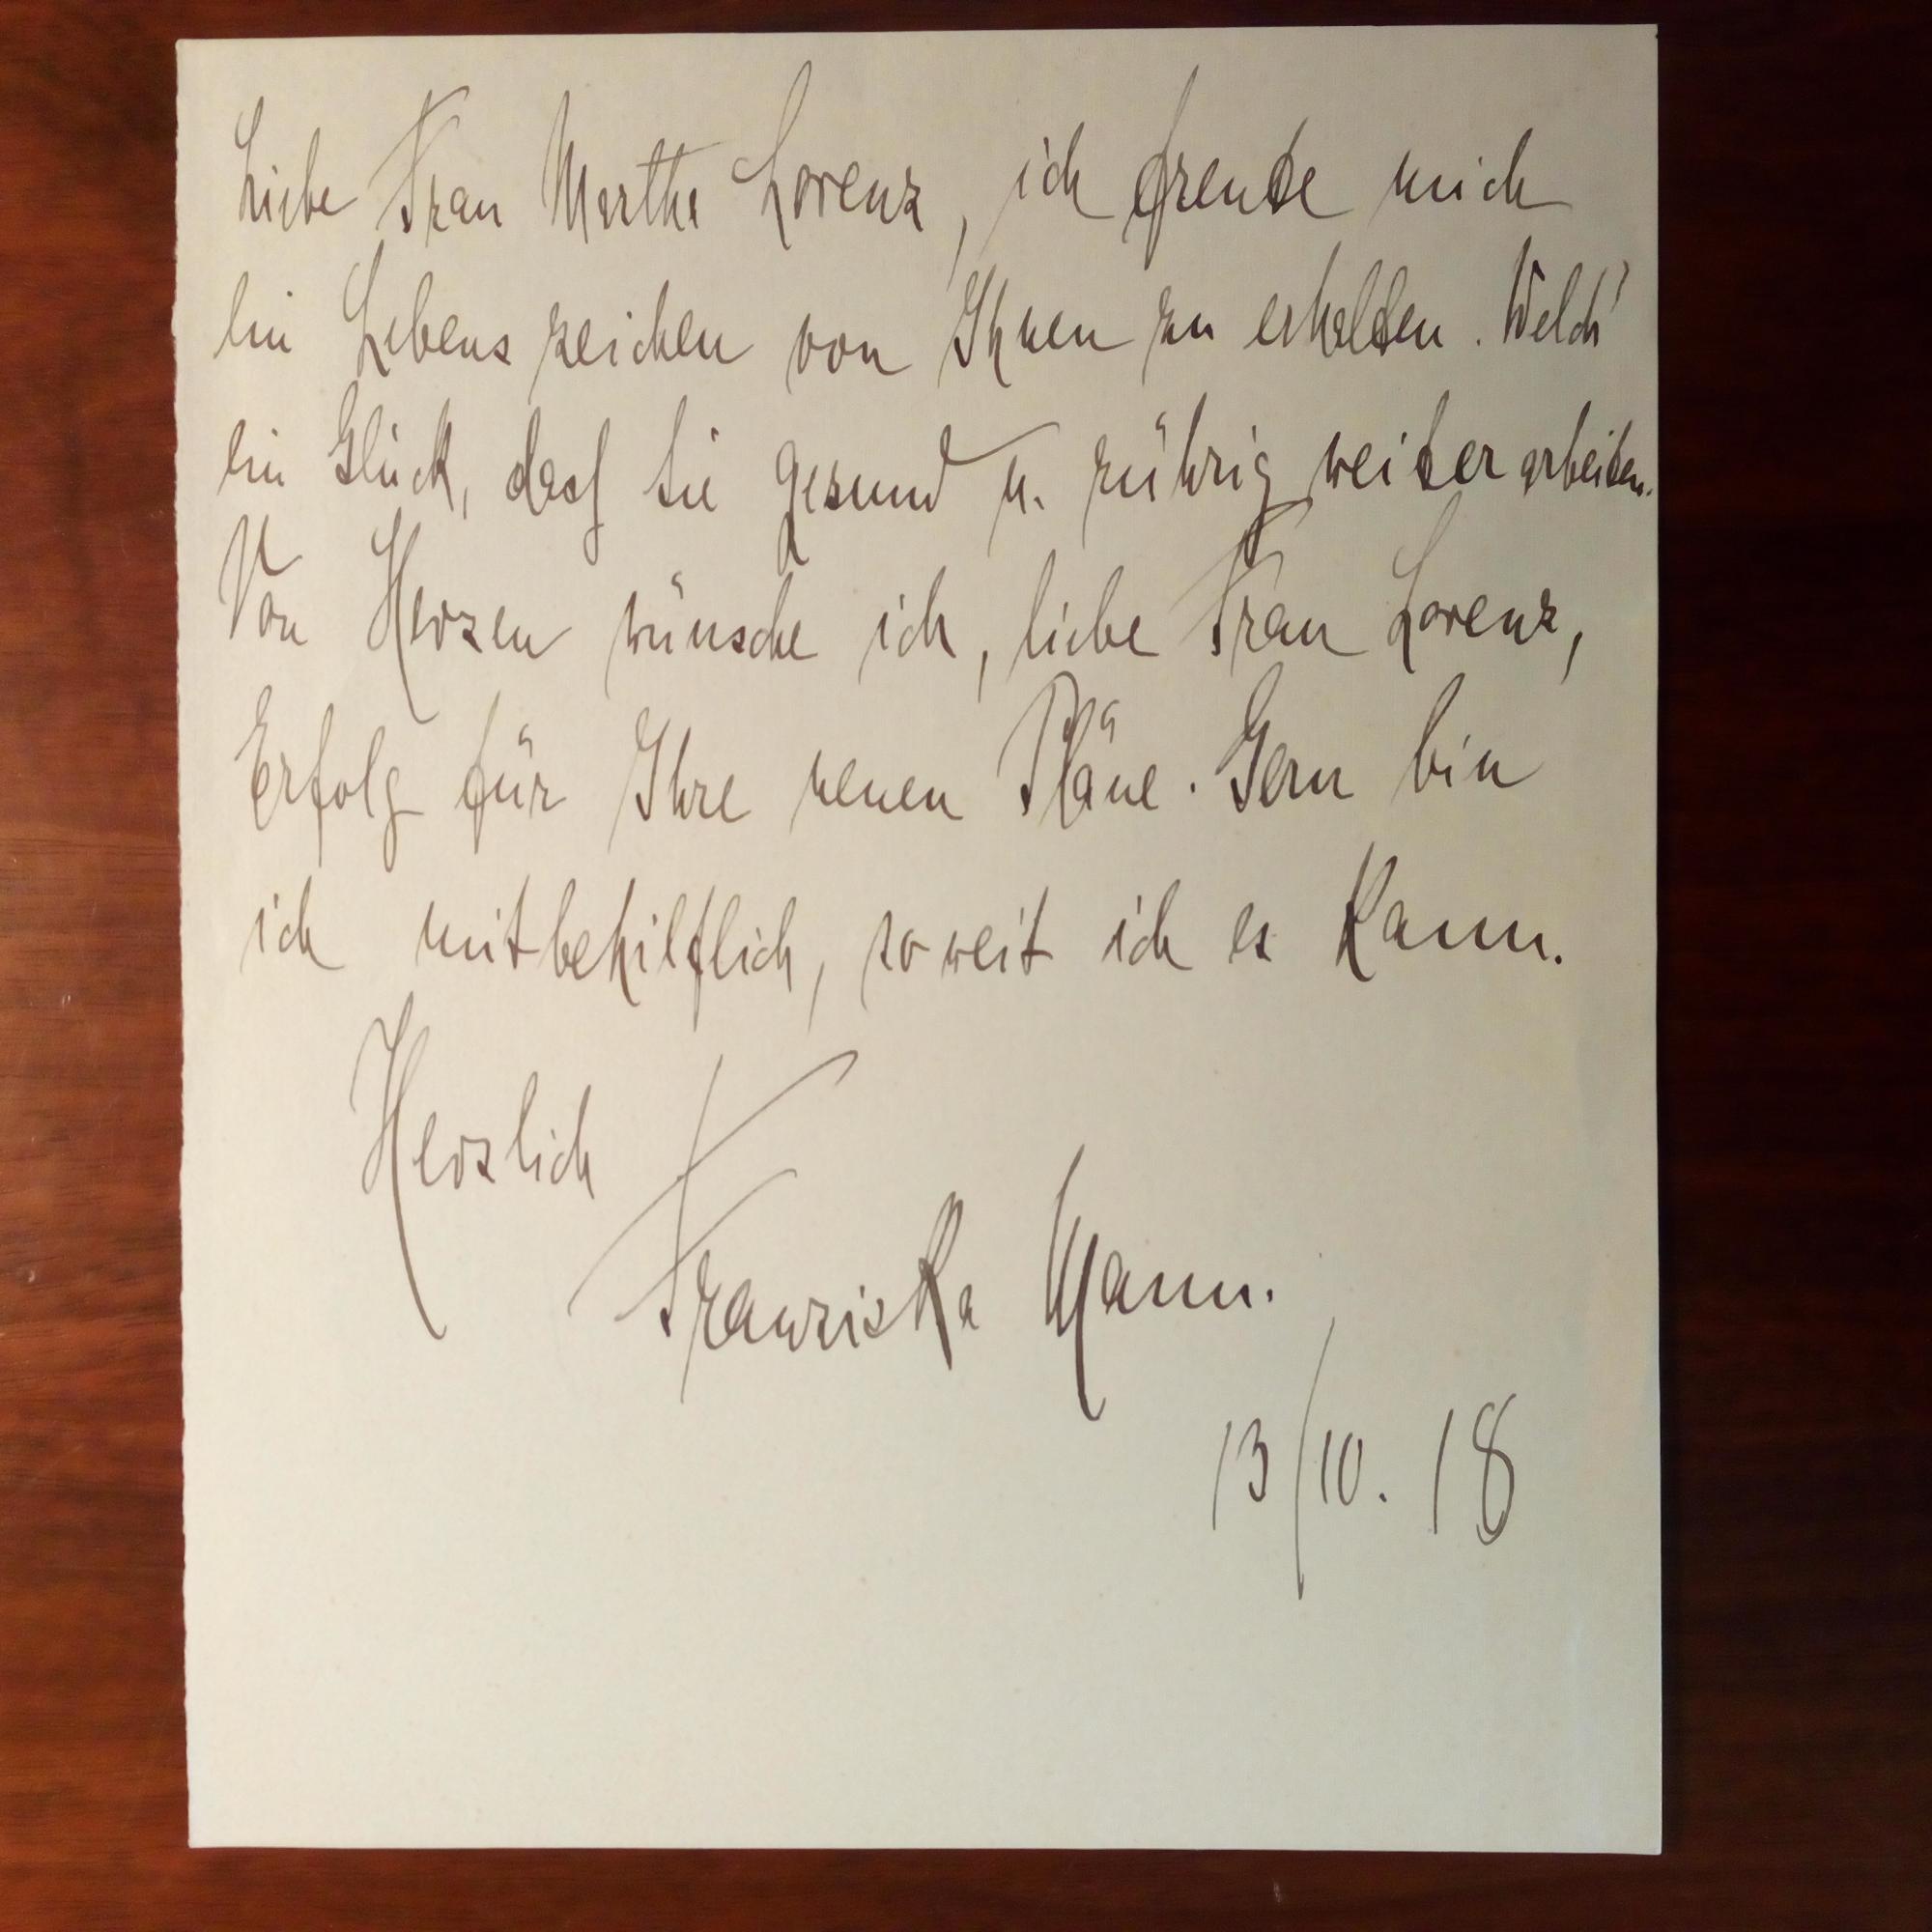 Liebe Frau Martha Lorenz, ich freute mich
ein Lebenszeichen von Ihnen zu erhalten. Welch'
ein Glück, dass Sie gesund u. rührig weiter arbeiten.
Von Herzen wünsche ich, liebe Frau Lorenz,
Erfolg für Ihre neuen Pläne. Gern bin
ich mitbehilflich, soweit ich es kann.
Herzlich
Franziska Mann.
13/10. 18